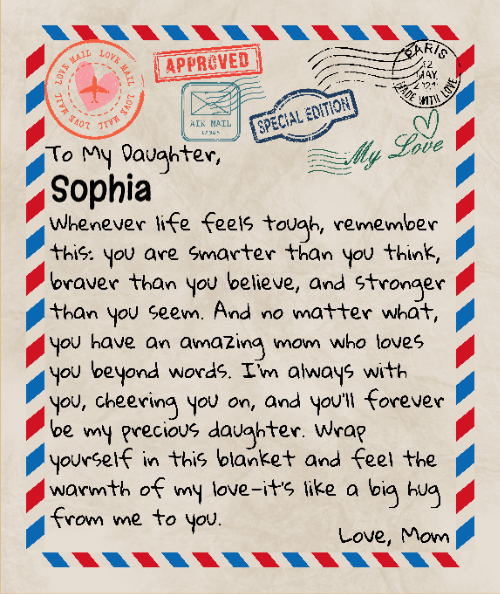 LOVE MAIL LOVE MAIL LOVE MAIL LOVE MAIL
APPROVED
AIR MAIL
SPECIAL EDITION
PARIS
12
MAY,
MADE WITH LOVE
My Love
To My Daughter,
Sophia
Whenever life feels tough, remember
this: you are smarter than you think,
braver than you believe, and stronger
than you seem. And no matter what,
you have an amazing mom who loves
you beyond words. I'm always with
you, cheering you on, and you'll forever
be my precious daughter. Wrap
yourself in this blanket and feel the
warmth of my love—it's like a big hug
from me to you.
Love, Mom